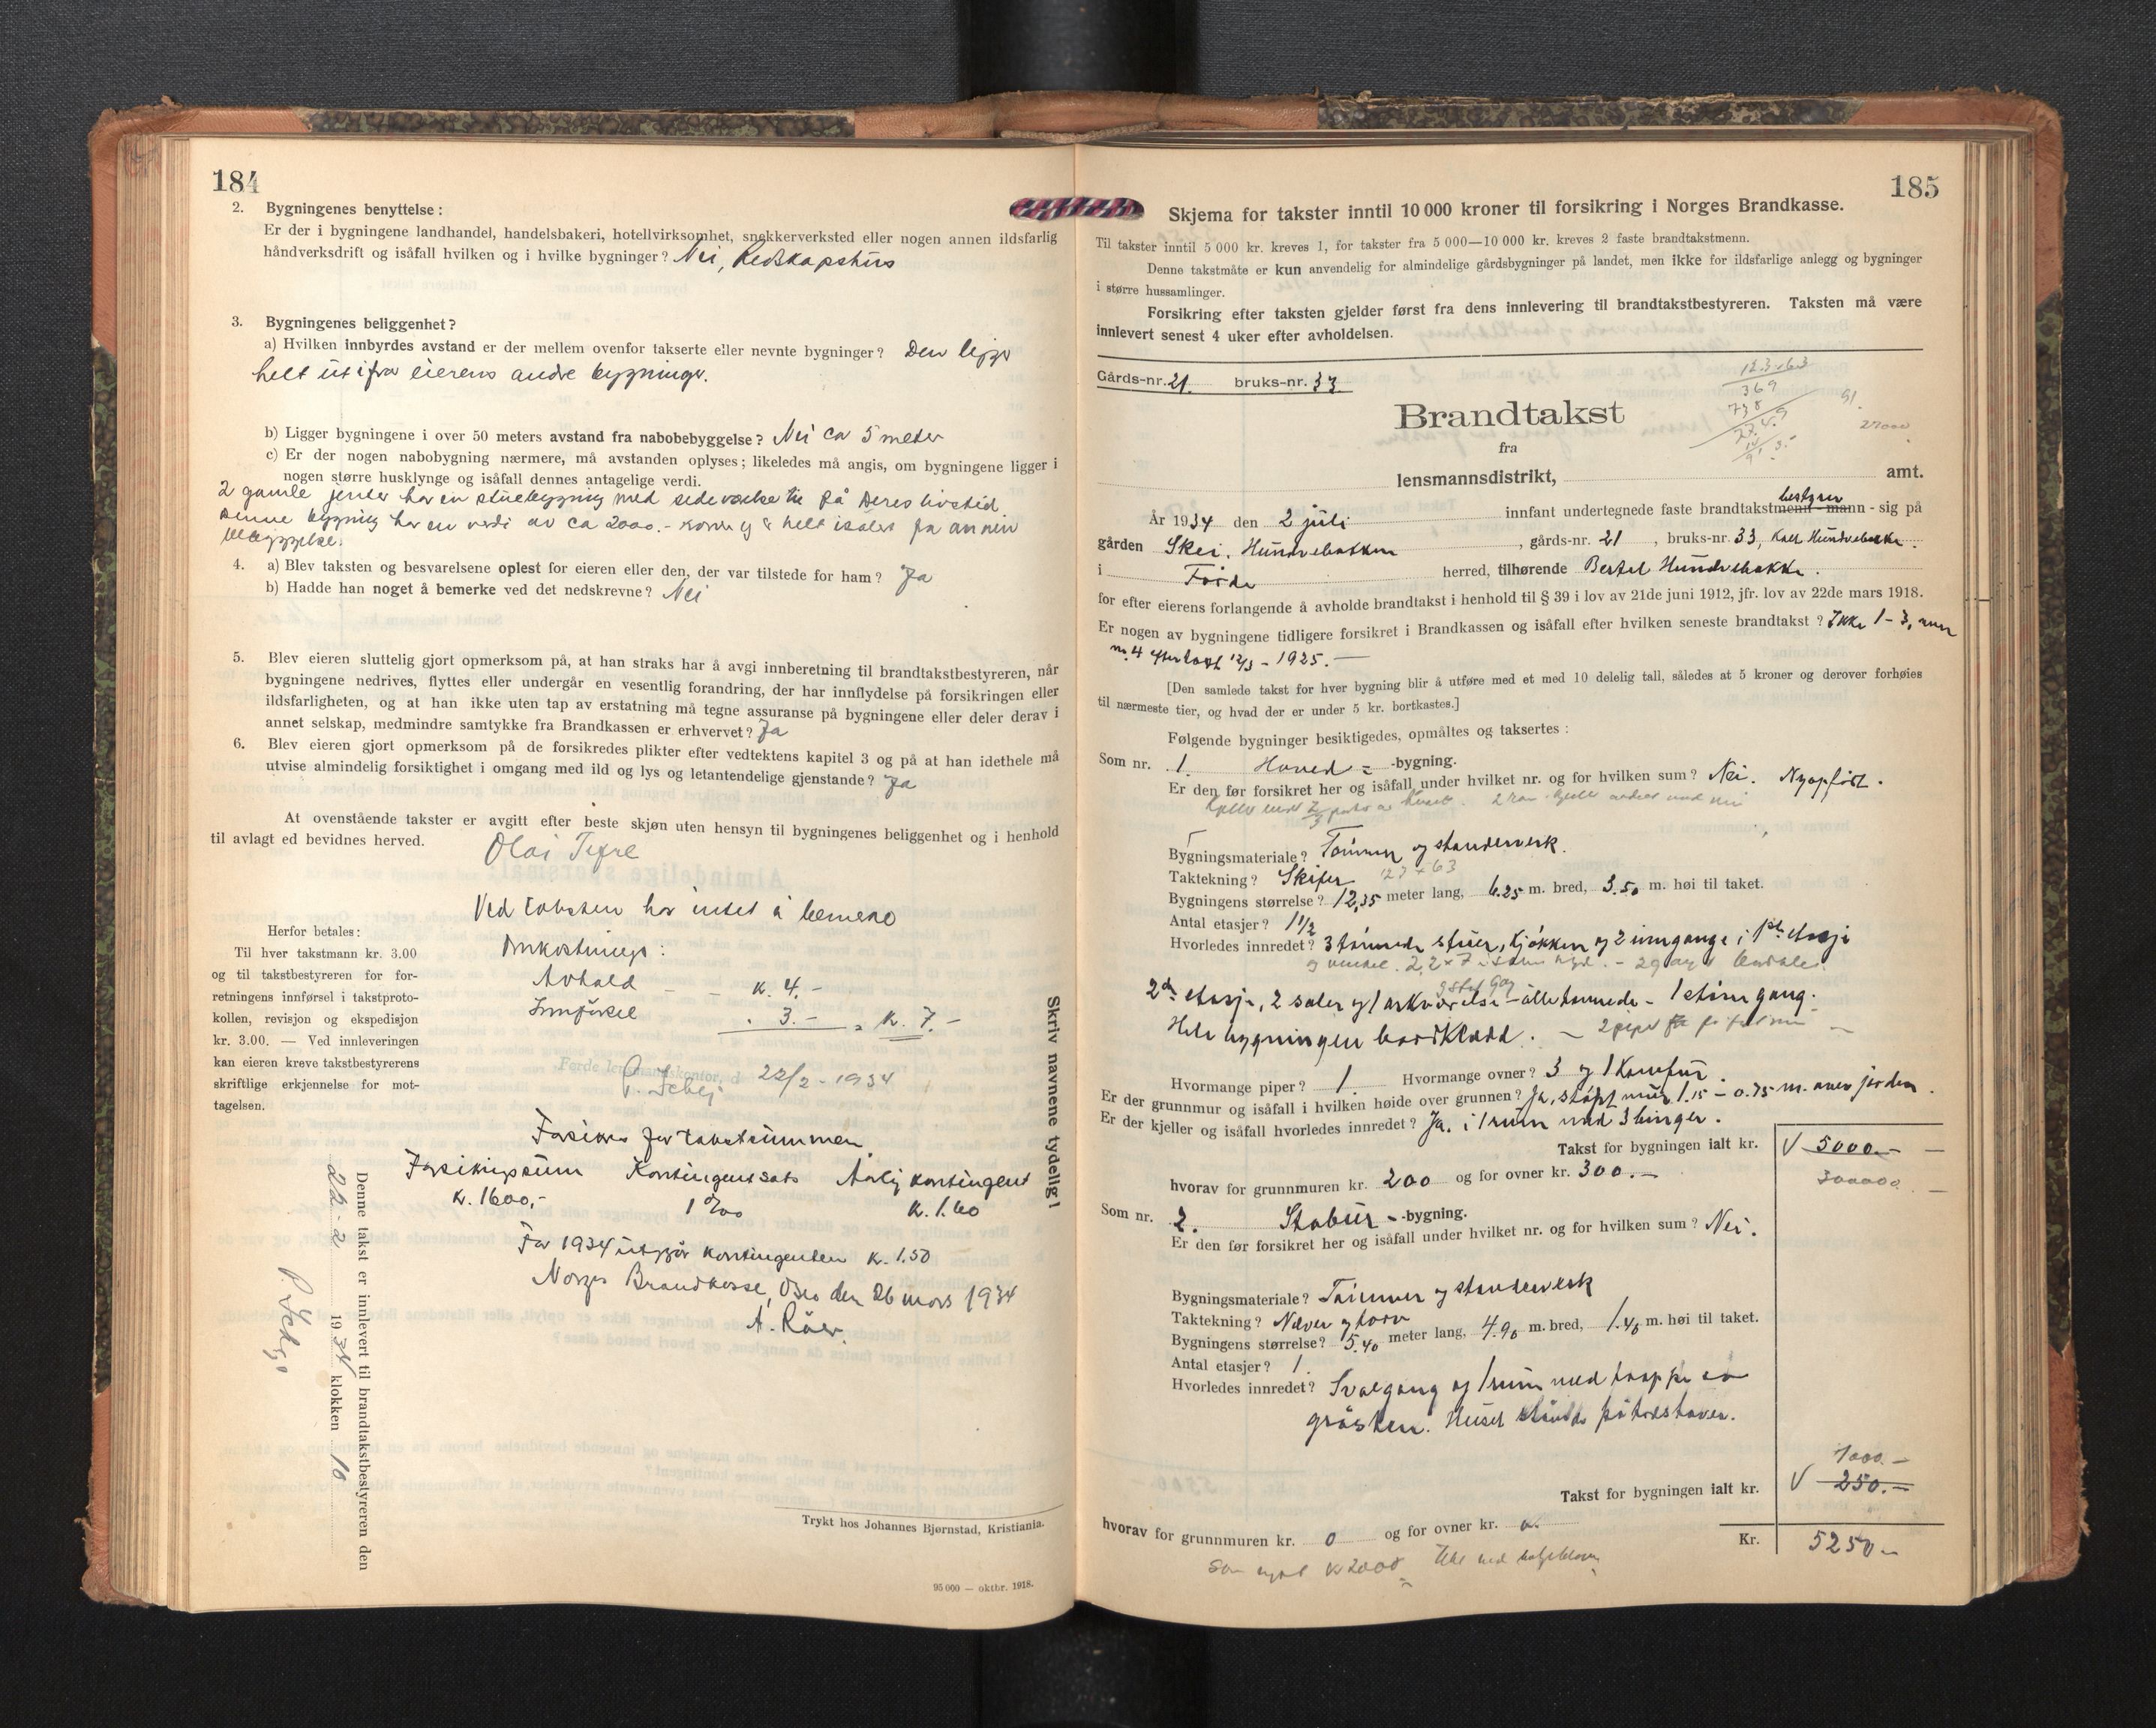 184
2. Bygningenes benyttelse:
Er der i bygningene landhandel, handelsbakeri, hotellvirksomhet, snekkerverksted eller nogen annen ildsfarlig
håndverksdrift og isåfall hvilken og i hvilke bygninger? Nei, Redskapshus
3. Bygningenes beliggenhet?
a) Hvilken innbyrdes avstand er der mellem ovenfor takserte eller nevnte bygninger? Den ligger
helt utifra eierens andre bygninger.
b) Ligger bygningene i over 50 meters avstand fra nabobebyggelse? Nei ca 5 meter
c) Er der nogen nabobygning nærmere, må avstanden oplyses; likeledes må angis, om bygningene ligger i
nogen større husklynge og isåfall dennes antagelige verdi.
2 gamle jenter har en stuebygning med til på Deres livstid.
Denne bygning har en verdi av ca 2000.- kroner og e helt isolert fra annen
bebyggelse.
4. a) Blev taksten og besvarelsene oplest for eieren eller den, der var tilstede for ham? Ja
b) Hadde han noget å bemerke ved det nedskrevne? Nei
5. Blev eieren sluttelig gjort opmerksom på, at han straks har å avgi innberetning til brandtakstbestyreren, når
bygningene nedrives, flyttes eller undergår en vesentlig forandring, der har innflydelse på forsikringen eller
ildsfarligheten, og at han ikke uten tap av erstatning må tegne assuranse på bygningene eller deler derav i
annet selskap, medmindre samtykke fra Brandkassen er erhvervet? Ja
6. Blev eieren gjort opmerksom på de forsikredes plikter efter vedtektens kapitel 3 og på at han idethele må
utvise almindelig forsiktighet i omgang med ild og lys og letantendelige gjenstande? Ja
At ovenstående takster er avgitt efter beste skjøn uten hensyn til bygningenes beliggenhet og i henhold
til avlagt ed bevidnes herved.
Olai Tefre
Ved taksten har intet å bemerke
Omkostninger:
Avhold - - k. 4.-
Innførsel . 3.- = k. 7.-
Førde lensmannskontor, d 22/2 - 1934
Herfor betales:
Til hver takstmann kr. 3.00
og til takstbestyreren for for-
retningens innførsel i takstproto-
kollen, revisjon og ekspedisjon
kr. 3.00. — Ved innleveringen
kan eieren kreve takstbestyrerens
skriftlige erkjennelse for mot-
tagelsen.
Forsikres for takstsummen
Forsikringssum Kontingentsats Årlig kontingent
k. 1600,- 1 ‰ k. 1.60
For 1934 utgjør kontingenten k. 1.50
Norges Brandkasse, Oslo den 26 mars 1934
Denne takst er innlevert til brandtakstbestyreren den
22 - 2 1934 klokken 10
Skriv navnene tydelig!
Trykt hos Johannes Bjørnstad, Kristiania.
95 000 — oktbr. 1918.
185
Skjema for takster inntil 10 000 kroner til forsikring i Norges Brandkasse.
Til takster inntil 5 000 kr. kreves 1, for takster fra 5 000—10 000 kr. kreves 2 faste brandtakstmenn.
Denne takstmåte er kun anvendelig for almindelige gårdsbygninger på landet, men ikke for ildsfarlige anlegg og bygninger
i større hussamlinger.
Forsikring efter taksten gjelder først fra dens innlevering til brandtakstbestyreren. Taksten må være
innlevert senest 4 uker efter avholdelsen.
Gårds-nr. 21 bruks-nr. 33
369
738
Brandtakst
fra
lensmannsdistrikt, amt.
År 1934 den 2 juli innfant undertegnede faste brandtakstmenn - mann - sig på
bestyrer
gården Skei, Hundvebakken, gårds-nr. 21, bruks-nr. 33, kalt Hundvebakke.
i Førde herred, tilhørende Bertel Hundvebakke.
for efter eierens forlangende å avholde brandtakst i henhold til § 39 i lov av 21de juni 1912, jfr. lov av 22de mars 1918.
Er nogen av bygningene tidligere forsikret i Brandkassen og isåfall efter hvilken seneste brandtakst? Ikke 1 - 3, men
nr. 4 efter takst 12/3 - 1925.—
[Den samlede takst for hver bygning blir å utføre med et med 10 delelig tall, således at 5 kroner og derover forhøies
til nærmeste tier, og hvad der er under 5 kr. bortkastes.]
Følgende bygninger besiktigedes, opmåltes og taksertes:
Som nr. 1. Hoved - -bygning.
Er den før forsikret her og isåfall under hvilket nr. og for hvilken sum? Nei. Nyopført.
Bygningsmateriale? Tømmer og standerverk.
Taktekning? Skifer
Bygningens størrelse? 12,35 meter lang, 6.25 m. bred, 3.50 m. høi til taket.
Antal etasjer? 1 1/2
Hvorledes innredet? 3 tømrede stuer, kjøkken og 2 innganger i 1ste etasje
2de etasje, 2 saler og 1 arkværelse - alle tømrede - 1 gang.
Hele bygningen bordklædd.
Hvormange piper? 1 Hvormange ovner? 3 og 1 komfur.
Er der grunnmur og isåfall i hvilken høide over grunnen? Ja, støpt mur 1.15 - 0.75 m. over jorden.
Er der kjeller og isåfall hvorledes innredet? Ja. i 1 rum med 3 binger.
Takst for bygningen ialt kr. V 5000.-
hvorav for grunnmuren kr. 200 og for ovner kr. 300.-
Som nr. 2. Stabur - -bygning.
Er den før forsikret her og isåfall under hvilket nr. og for hvilken sum? Nei.
Bygningsmateriale? Tømmer og standerverk
Taktekning? Næver og torv
Bygningens størrelse? 5.40 meter lang, 4.90 m. bred, 1.40 m. høi til taket.
Antal etasjer? 1.
Hvorledes innredet? Svalgang og 1 rum med trappe av
gråsten. Huset på
1000.-
Takst for bygningen ialt kr. V 250.-
hvorav for grunnmuren kr. 0 og for ovner kr. 0.
Kr. 5250-